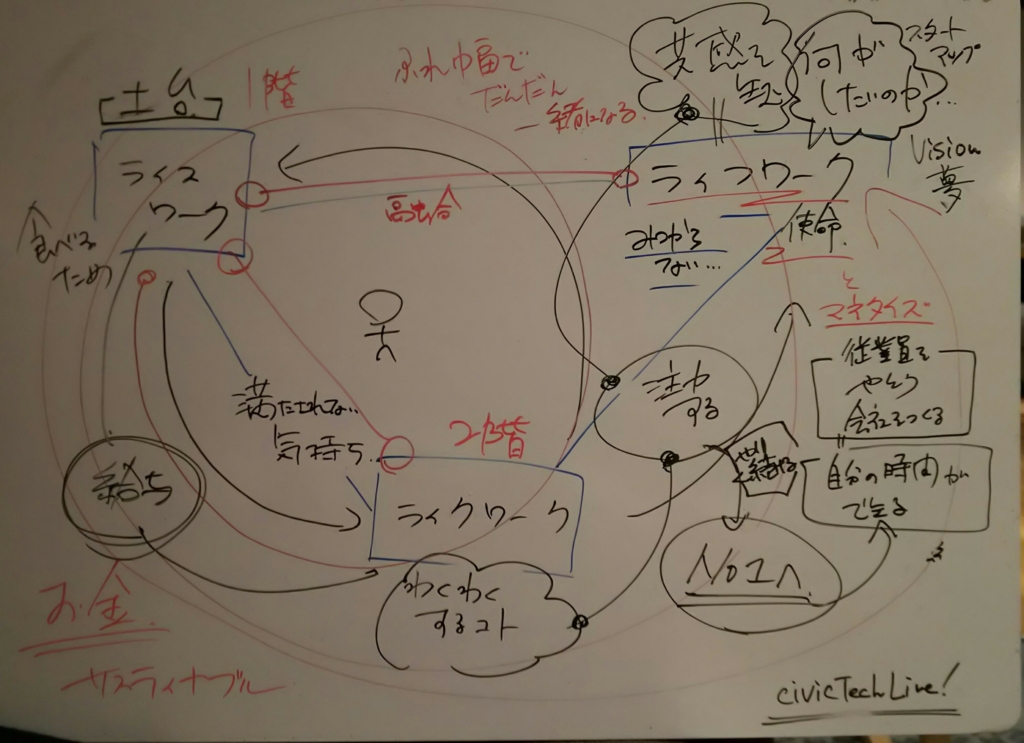 土台
1階
ふれ巾幅で
だんだん
一緒になる
共感を
何が
したいのか…
スタート
アップ
ライス
ワーク
ライフワーク
Vision
夢
使命
食べる
ため
みつから
ない…
と
マネタイズ
従業員を
やとう
会社をつくる
満たされない…
気持ち
2階
注力
する
自分の時間が
できる
給与
ライクワーク
No1へ
わくわく
するコト
お金
サスティナブル
civicTechLive!